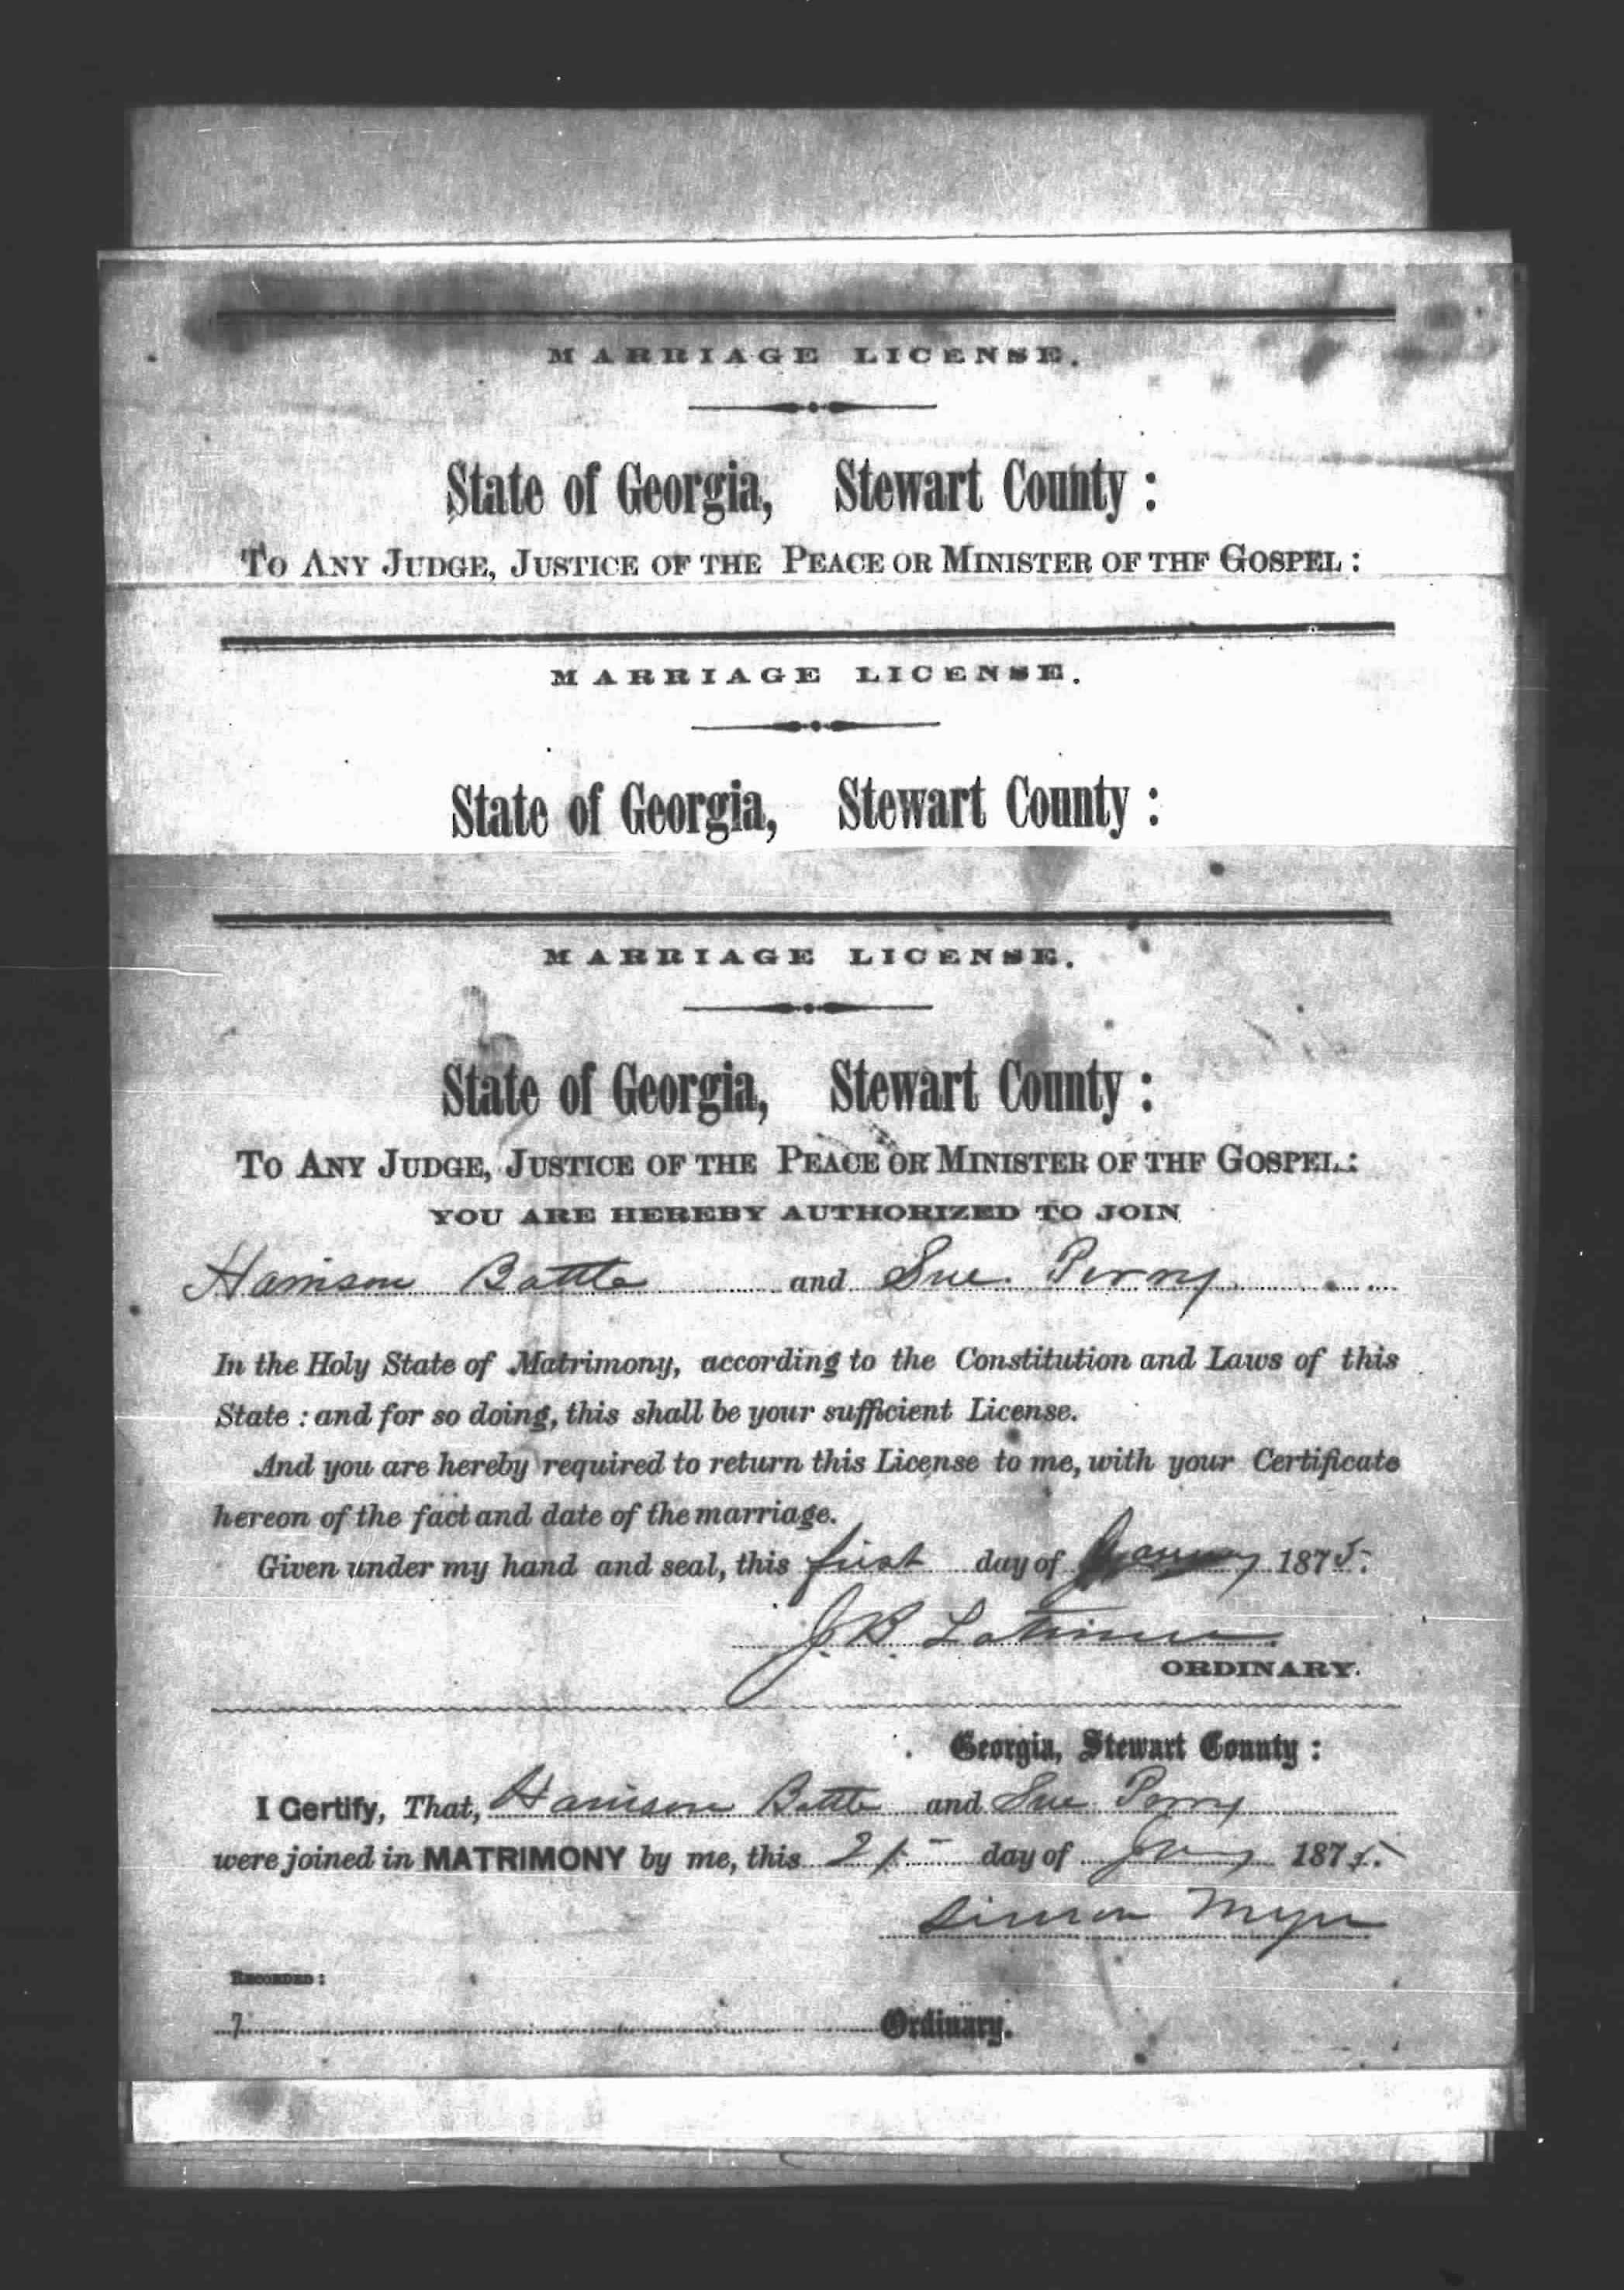 MARRIAGE LICENSE.
State of Georgia, Stewart County :
TO ANY JUDGE, JUSTICE OF THE PEACE OR MINISTER OF THF GOSPEL :
MARRIAGE LICENSE.
State of Georgia, Stewart County :
MARRIAGE LICENSE.
State of Georgia, Stewart County :
TO ANY JUDGE, JUSTICE OF THE PEACE OR MINISTER OF THF GOSPEL :
YOU ARE HEREBY AUTHORIZED TO JOIN
Harrison Battle and Sue Perry
In the Holy State of Matrimony, according to the Constitution and Laws of this
State : and for so doing, this shall be your sufficient License.
And you are hereby required to return this License to me, with your Certificate
hereon of the fact and date of the marriage.
Given under my hand and seal, this first day of January 1875.
J. B. Latimer
ORDINARY.
Georgia, Stewart County :
I Certify, That, Harrison Battle and Sue Perry
were joined in MATRIMONY by me, this day of Jany 1875.
Simon
RECORDED :
Ordinary.